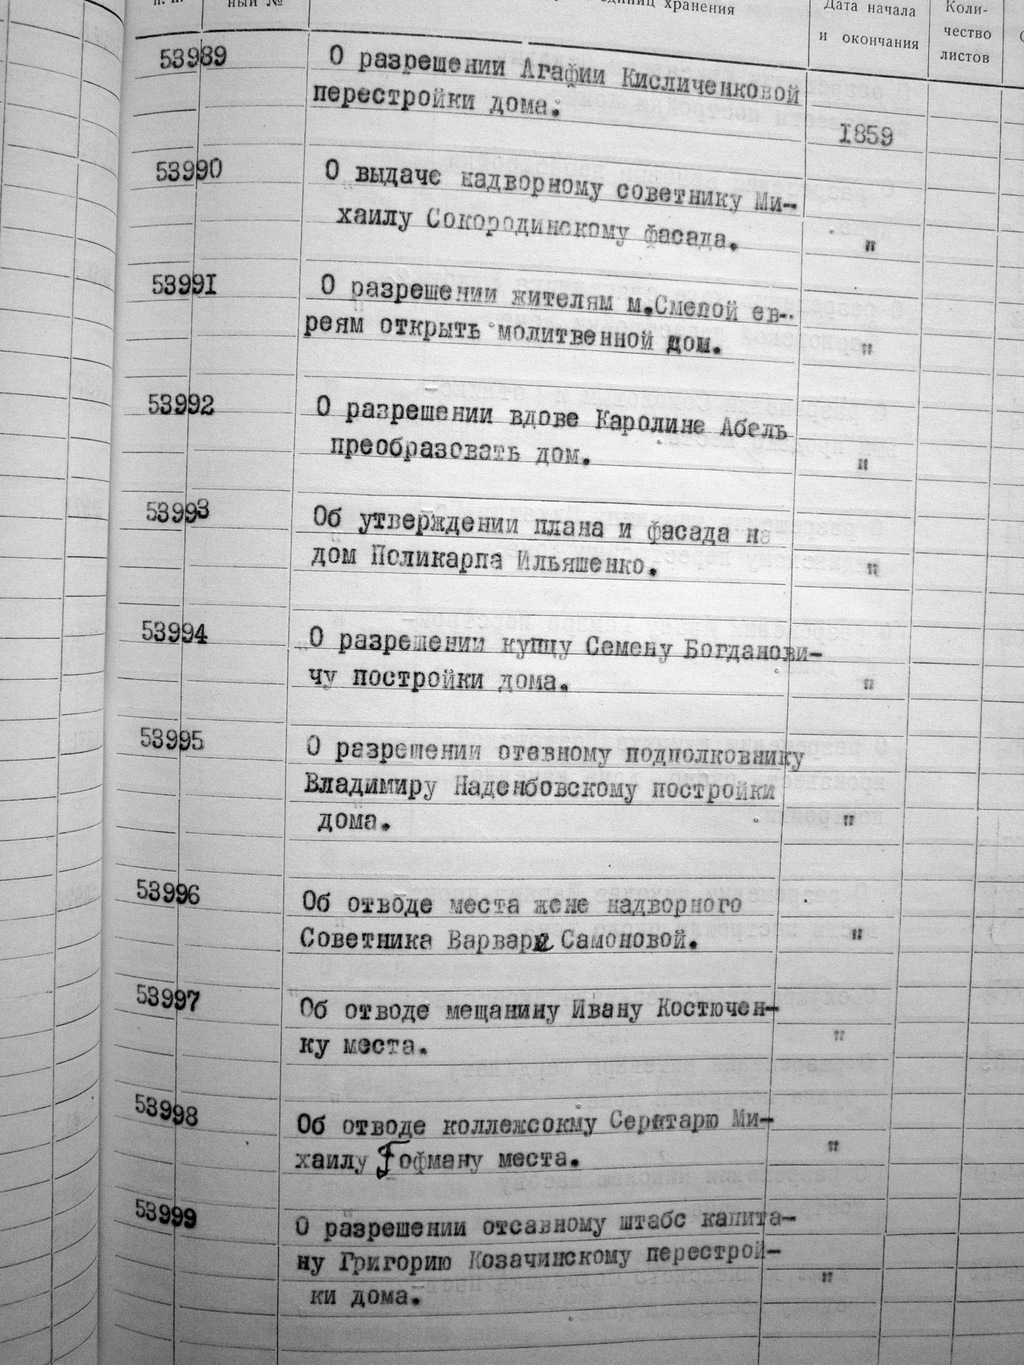 п. п.
ный №
единиц хранения
Дата начала
и окончания
Коли-
чество
листов
53989
О разрешении Агафии Кисличенковой
перестройки дома.
1859
53990
О выдаче кадворному советнику Ми-
хаилу Сокородинскому фасада.
"
53991
О разрешении жителям м.Смелой ев-
реям открыть молитвенной дом.
"
53992
О разрешении вдове Каролине Абель
преобразовать дом.
"
53993
Об утверждении плана и фасада на
дом Поликарпа Ильяшенко.
"
53994
О разрелении купцу Семену Богданови-
чу постройки дома.
"
53995
О разрешении отавному подполковнику
Владимиру Наденбовскому постройки
дома.
"
53996
Об отводе места жене надворного
Советника Варвары Самоновой.
"
53997
Об отводе мещанину Ивану Костючен-
ку места.
"
53998
Об отводе коллежсокму Серктарю Ми-
хаилу Гофману места.
"
53999
О разрешении отсавному штабс капита-
ну Григорию Козачинскому перестрой-
ки дома.
"